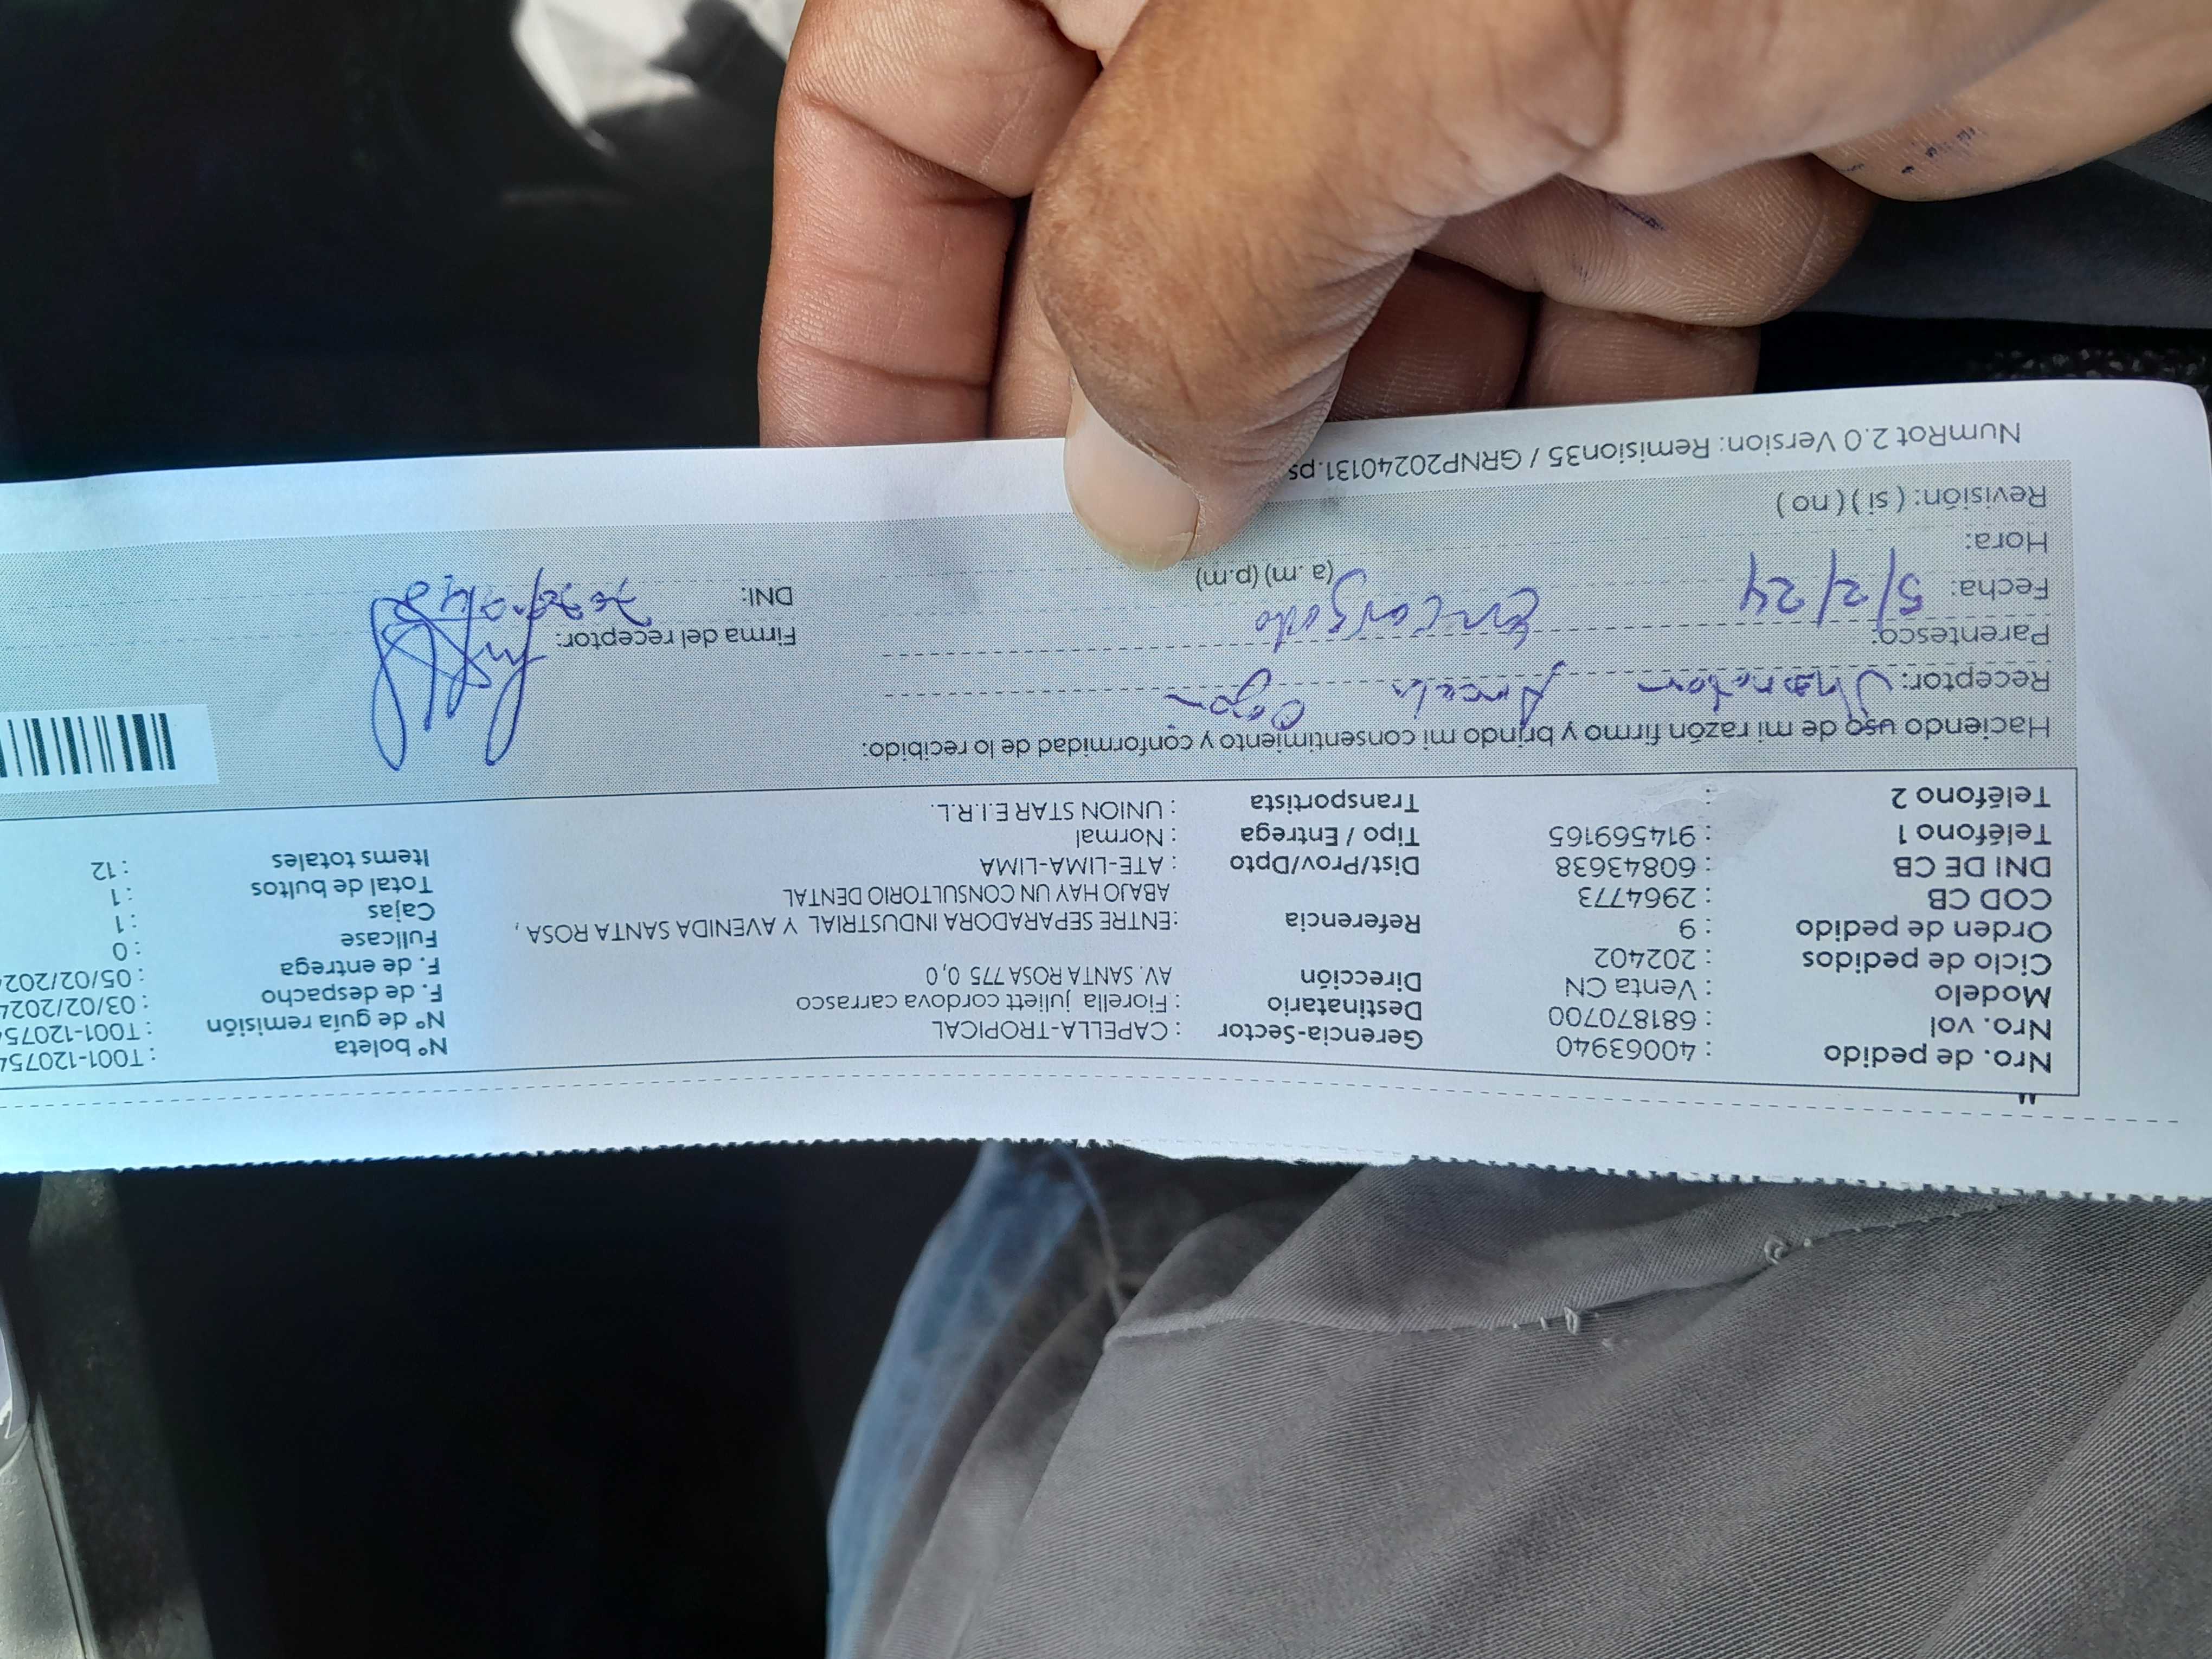 Nro. de pedido : 40063940 Gerencia-Sector : CAPELLA-TROPICAL N° boleta : T001-120754
Nro. vol : 681870700 Destinatario : Fiorella juliett cordova carrasco N° de guía remisión : T001-120754
Modelo : Venta CN Dirección AV. SANTA ROSA 775 0,0 F. de despacho : 03/02/2024
Ciclo de pedidos : 202402 F. de entrega : 05/02/2024
Orden de pedido : 9 Referencia :ENTRE SEPARADORA INDUSTRIAL Y AVENIDA SANTA ROSA , Fullcase : 0
COD CB : 2964773 ABAJO HAY UN CONSULTORIO DENTAL Cajas : 1
DNI DE CB : 60843638 Dist/Prov/Dpto : ATE-LIMA-LIMA Total de bultos : 1
Teléfono 1 : 914569165 Tipo / Entrega : Normal Items totales : 12
Teléfono 2 : Transportista : UNION STAR E.I.R.L.
Haciendo uso de mi razón firmo y brindo mi consentimiento y conformidad de lo recibido:
Receptor:
Parentesco: Encargado Firma del receptor:
Fecha: 5/2/24 DNI:
Hora: (a .m) (p.m)
Revisión: ( si ) ( no )
NumRot 2.0 Version: Remision35 / GRNP20240131.ps